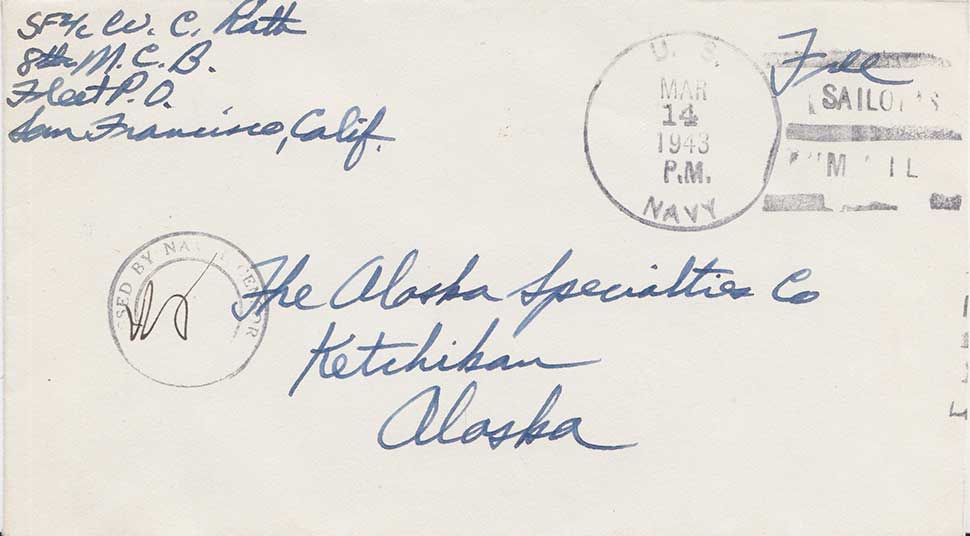 SF2/c W. C. Rath
8th M.C.B.
Fleet P.O.
San Francisco, Calif.
U. S.
MAR
14
1943
P.M.
NAVY
Free
SAILO 'S
M IL
SSED BY NAV CENSOR
The Alaska Specialties Co
Ketchikan
Alaska